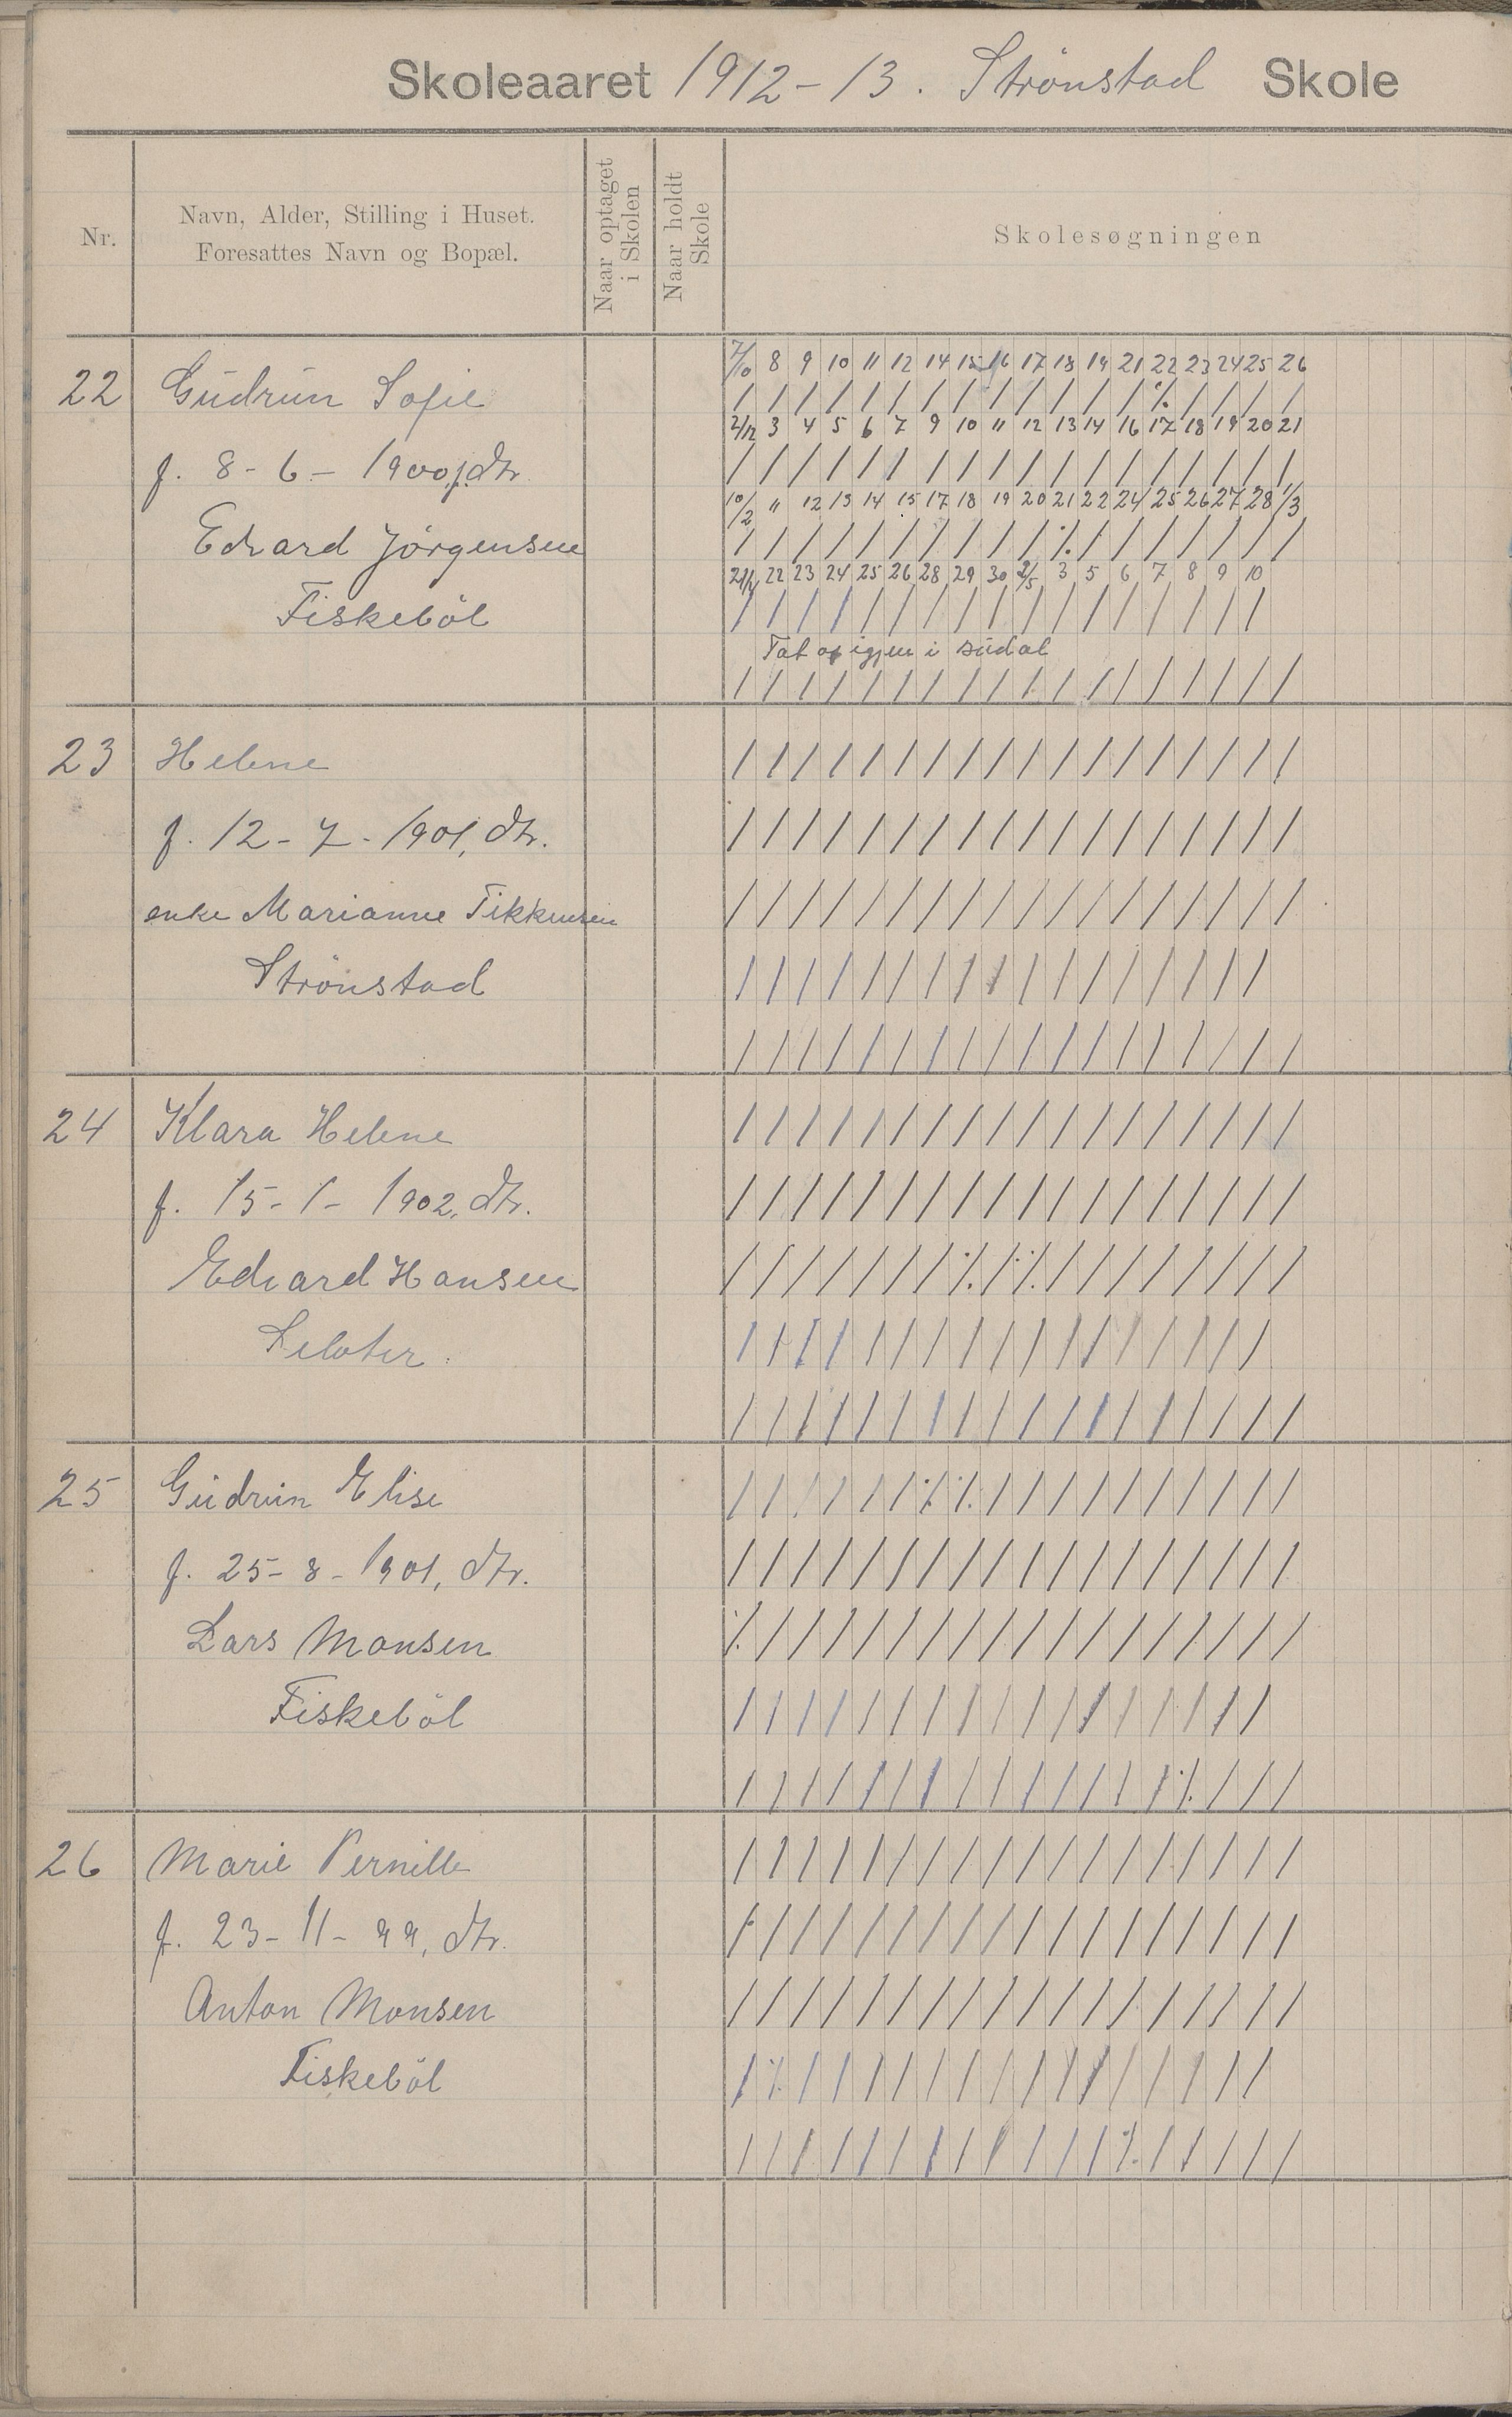 Skoleaaret 1912-13. Strönstad Skole
Nr.
Navn, Alder, Stilling i Huset.
Foresattes Navn og Bopæl.
Naar optaget
i Skolen
Naar holdt
Skole
Skolesøgningen
7/10 8 9 10 11 12 14 15 16 17 18 19 21 22 23 24 25 26
22 Gudrun Sofie / / / / / / / / / / / / / ٪ / / / /
2/12 3 4 5 6 7 9 10 11 12 13 14 16 17 18 19 20 21
f. 8-6-1900, dtr. / / / / / / / / / / / / / / / / / /
10/2 11 12 13 14 15 17 18 19 20 21 22 24 25 26 27 28 1/3
Edvard Jörgensen / / / / / / / / / / ٪ / / / / / / /
21/4 22 23 24 25 26 28 29 30 2/5 3 5 6 7 8 9 10
Fiskeböl / / / / / / / / / / / / / / / / /
Tat op igjen i südal
/ / / / / / / / / / / / / / / / / /
23 Helene / / / / / / / / / / / / / / / / / /
f. 12-7-1901, dtr. / / / / / / / / / / / / / / / / / /
enke Marianne Tikkensen / / / / / / / / / / / / / / / / / /
Strönstad / / / / / / / / / / / / / / / / /
/ / / / / / / / / / / / / / / / / /
24 Klara Helene / / / / / / / / / / / / / / / / / /
f. 15-1-1902, dtr. / / / / / / / / / / / / / / / / / /
Edvard Hansen / / / / / / / ٪ / ٪ / / / / / / / /
/ / / / / / / / / / / / / / / / /
/ / / / / / / / / / / / / / / / / /
25 Gudrun Elise / / / / / / ٪ ٪ / / / / / / / / / /
f. 25-8-1901, dtr. / / / / / / / / / / / / / / / / / /
Lars Monsen ٪ / / / / / / / / / / / / / / / / /
Fiskeböl / / / / / / / / / / / / / / / / /
/ / / / / / / / / / / / / / ٪ / / /
26 Marie Pernille / / / / / / / / / / / / / / / / / /
f. 23-11-99, dtr. / / / / / / / / / / / / / / / / / /
Anton Monsen / / / / / / / / / / / / / / / / / /
Fiskeböl / ٪ / / / / / / / / / / / / / / /
/ / / / / / / / / / / / ٪ / / / / /